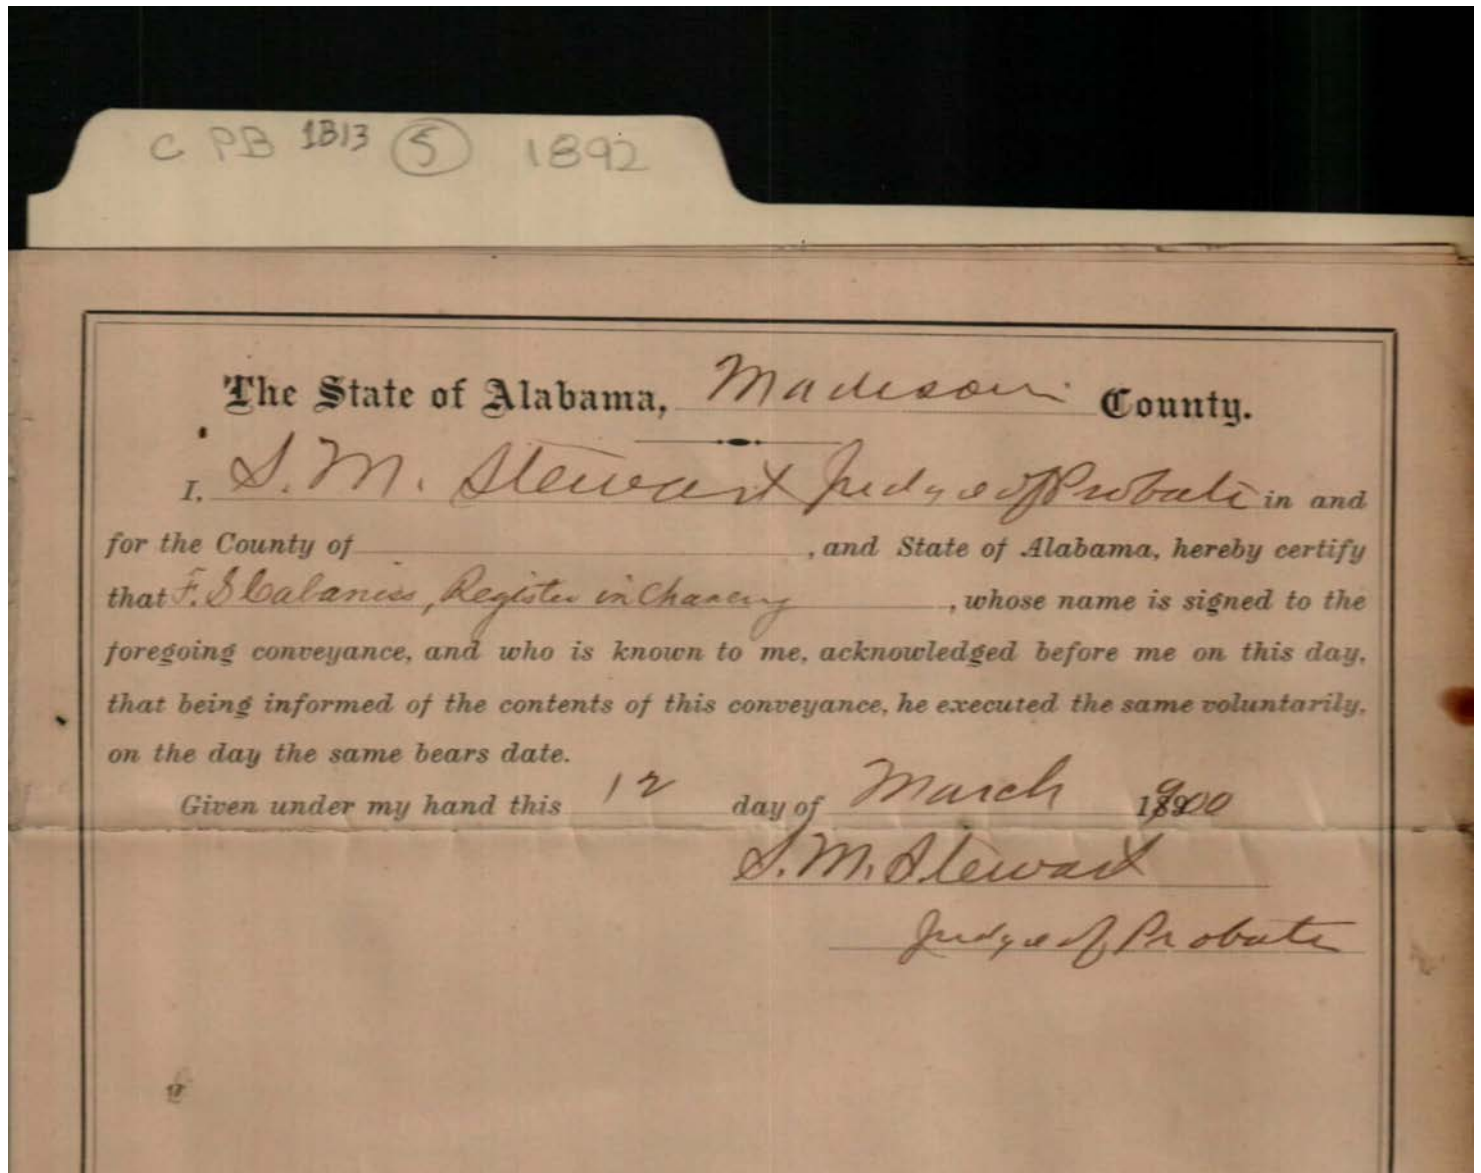 C PB 1813 5 1892
The State of Alabama, Madison County.
I. S. M. Stewart Judge of Probate in and
for the County of , and State of Alabama, hereby certify
that F. S Cabaniss, Register in Chancery , whose name is signed to the
foregoing conveyance, and who is known to me, acknowledged before me on this day,
that being informed of the contents of this conveyance, he executed the same voluntarily,
on the day the same bears date.
Given under my hand this 12 day of March 1900
S. M. Stewart
Judge of Probate